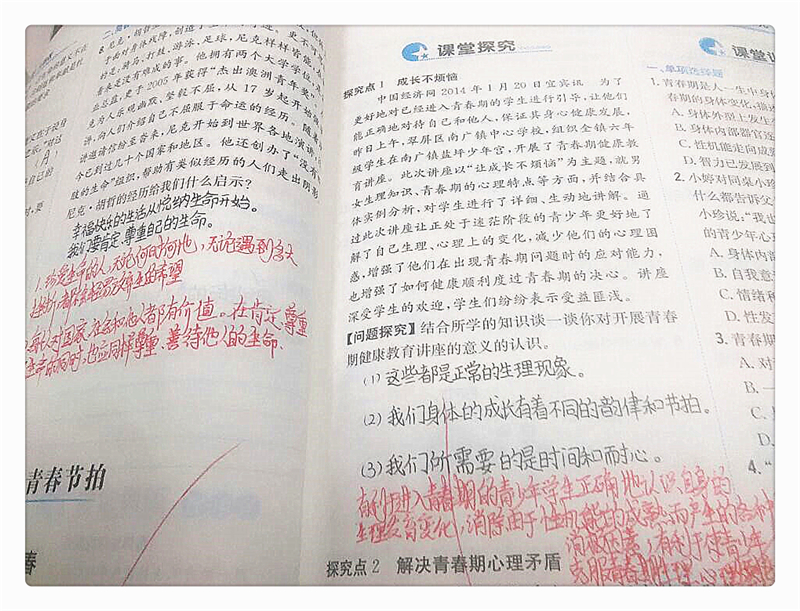 B.尼克·胡哲
于面对身体残障,创造了生
的是,骑马、打鼓、游泳、足球,尼克样样皆能,在
看来是没有难成的事。他拥有两个大学学位,是
业总监,更于2005年获得“杰出澳洲青年奖”
克为人乐观幽默、坚毅不屈,从17岁起开始
讲,向人们介绍自己不屈服于命运的经历。随着
讲邀请信纷至沓来,尼克开始到世界各地演讲,
今已到过几十个国家和地区。他还创办了“没有
肢的生命”组织,帮助有类似经历的人们走出阴影
尼克·胡哲的经历给我们什么启示?
幸福快乐的生活从悦纳生命开始。
我们要肯定、尊重自己的生命。
1.珍爱生命的人,无论何时何地,无论遇到多大
挫折,都不会轻易放弃生的希望
对国家、社会和他人都有价值。在肯定、尊重
生命的同时,也应同样尊重、善待他人的生命.
青春节拍
春
课堂探究
探究点1 成长不烦恼
中国经济网2014年1月20日宜宾讯 为了
更好地对已经进入青春期的学生进行引导,让他们
能正确地对待自己和他人,保证其身心健康发展,
昨日上午,翠屏区南广镇中心学校,组织全镇六年
级学生在南广镇盐坪少年宫,开展了青春期健康教
育讲座。此次讲座以“让成长不烦恼”为主题,就男
女生理知识、青春期的心理特点等方面,并结合具
体实例分析,对学生进行了详细、生动地讲解。通
过此次讲座让正处于迷茫阶段的青少年更好地了
解了自己生理、心理上的变化,减少他们的心理困
惑,增强了他们在出现青春期问题时的应对能力,
也增强了如何健康顺利度过青春期的决心。讲座
深受学生的欢迎,学生们纷纷表示受益匪浅。
【问题探究】结合所学的知识谈一谈你对开展青春
期健康教育讲座的意义的认识。
(1)这些都是正常的生理现象。
(2)我们身体的成长有着不同的韵律和节拍。
(3)我们所需要的是时间和耐心。
有利于进入青春期的青少年学生正确地认识自身的
生理发育变化,消除由于性机能的成熟而产生的各种
消极因素,有利于使青少年
克服青春期生理、心理
探究点2 解决青春期心理矛盾
课堂训
一、单项选择题
1.青春期是人一生中身体
春期的身体变化,描述
A.身体外型上发生
B.身体内部器官逐
C.性机能走向成熟
D.智力已发展到
2.小婷对同桌小珍
什么都告诉父
小珍说,“我也
的青少年心
A.身体内部
B.自我意
C.情绪
D.性发
3.青春期
A.对
B.一
C.
D.
4.“